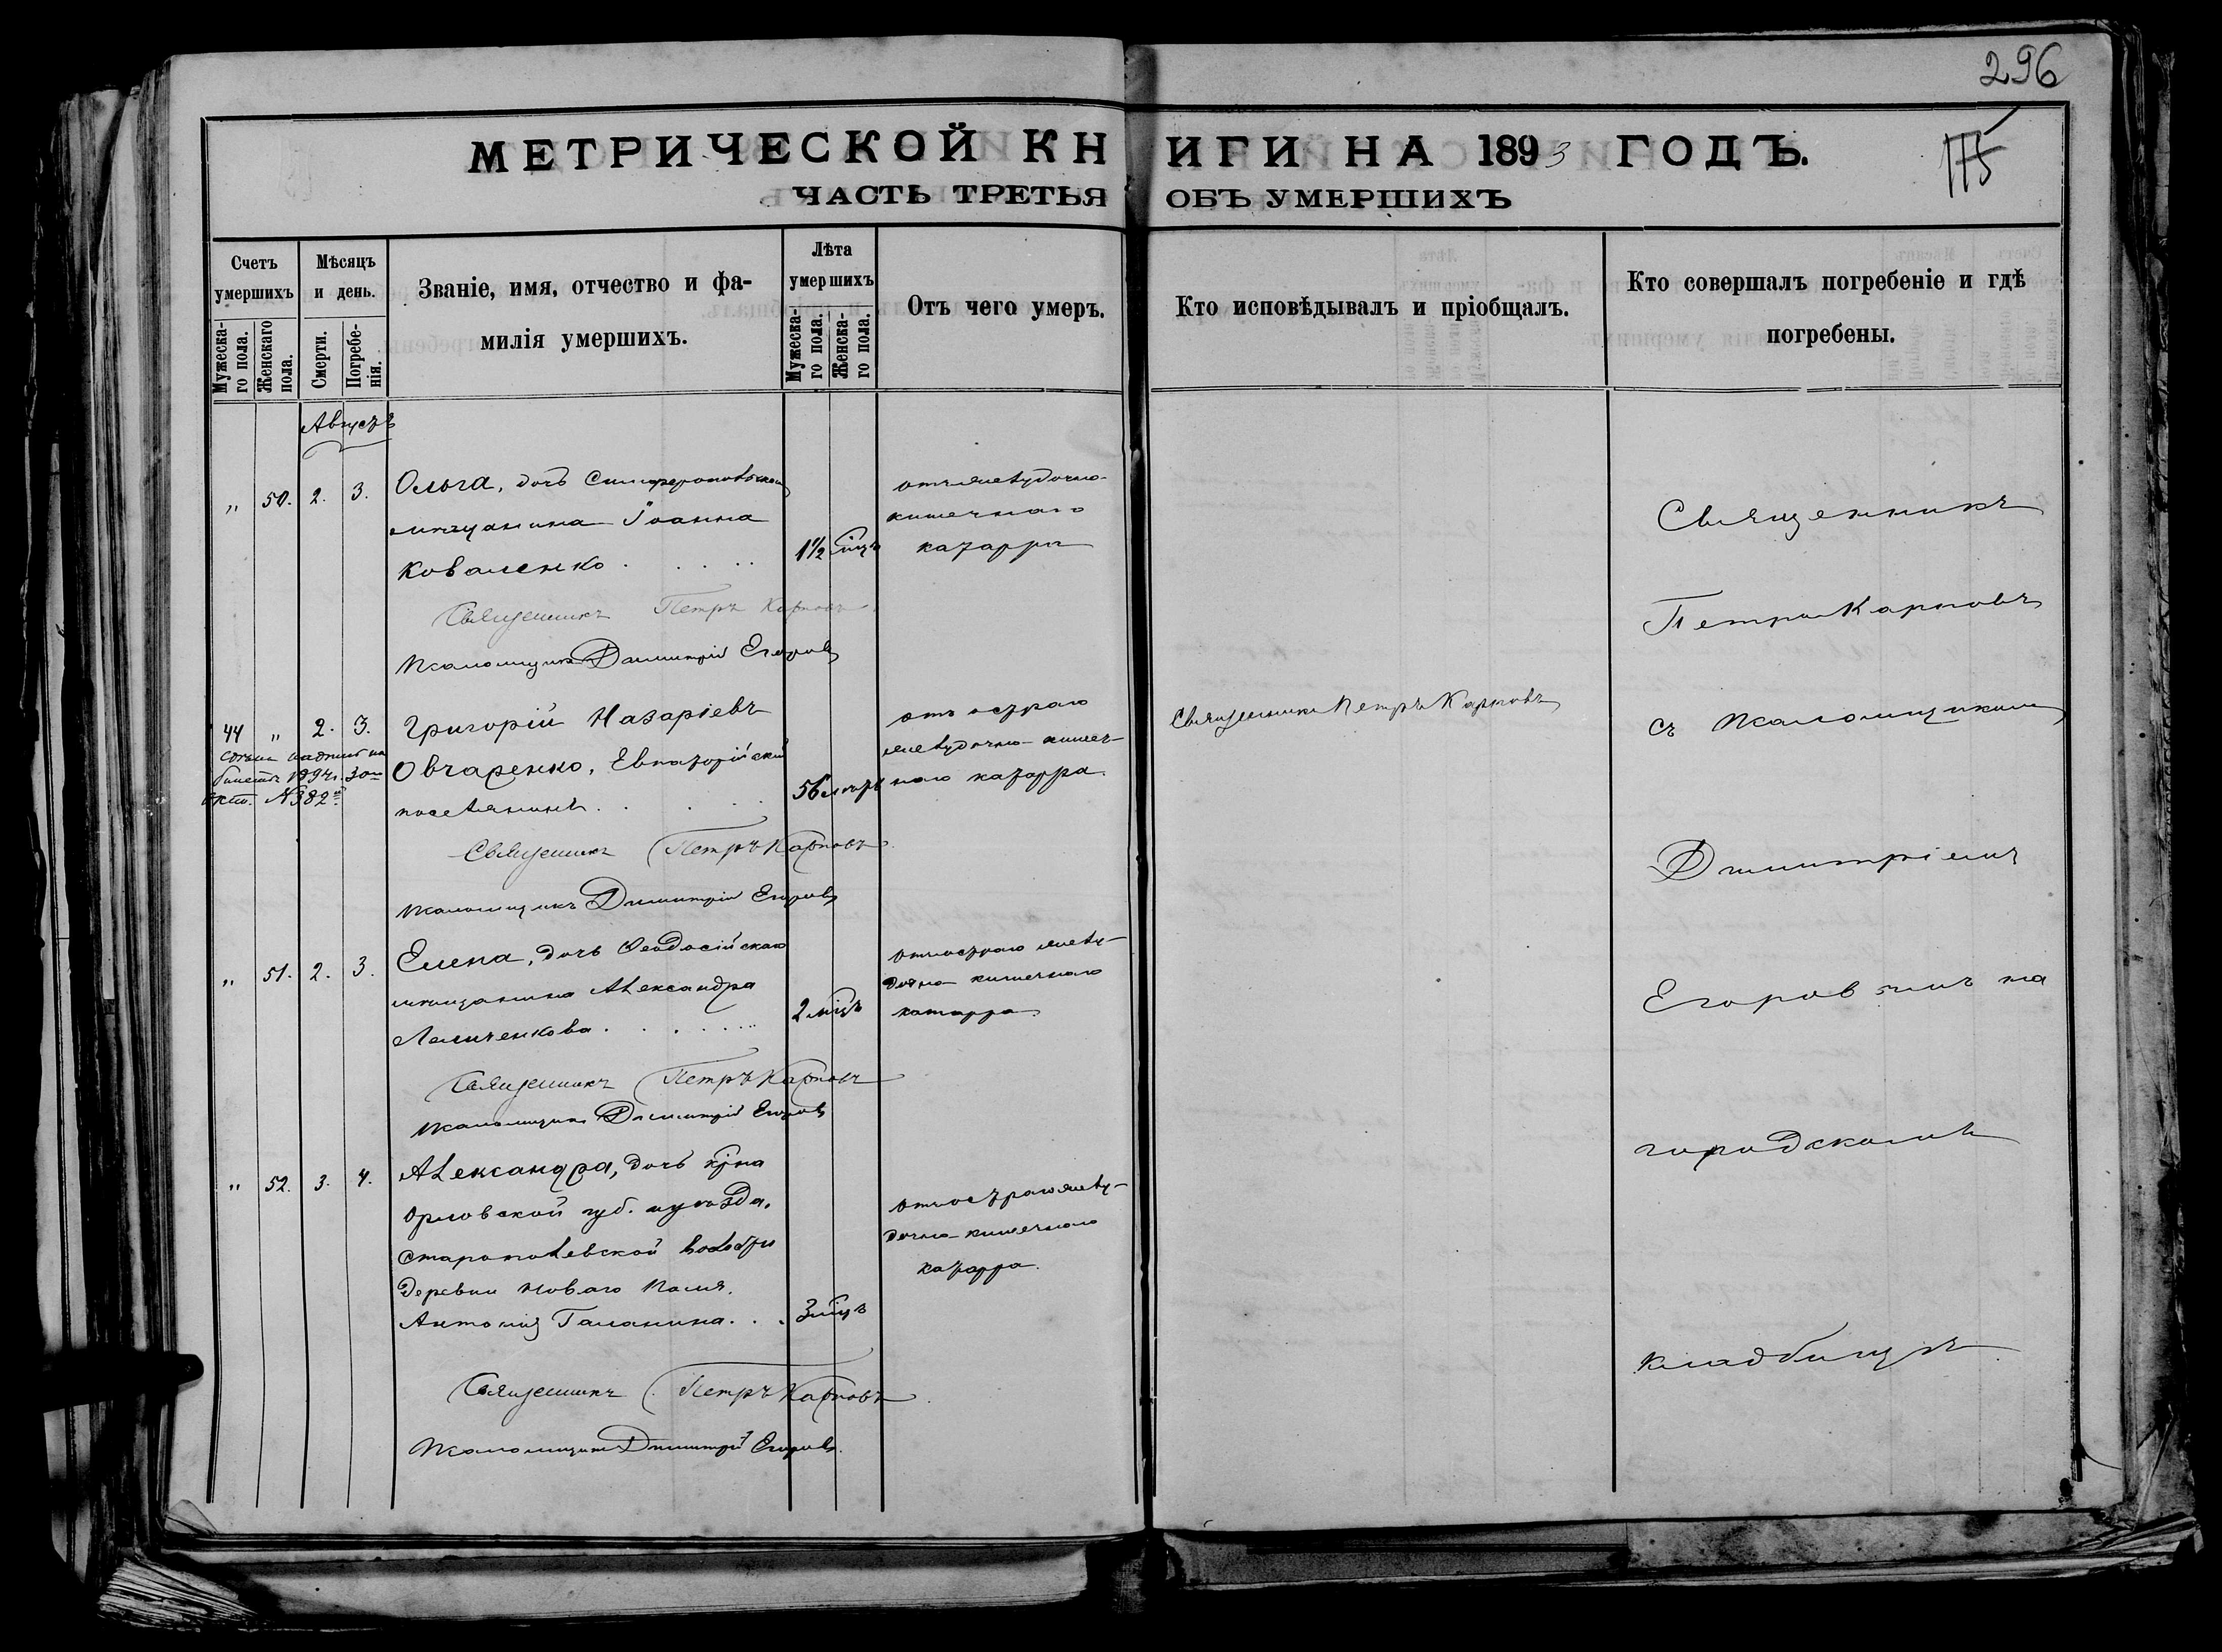 296
МЕТРИЧЕСКОЙ КНИГИ НА 1893 ГОДЪ.
175
ЧАСТЬ ТРЕТЬЯ ОБЪ УМЕРШИХЪ
Счетъ умершихъ
Мужеска-го пола.
Женскаго пола.
Мѣсяцъ и день.
Смерти.
Погребе-нія.
Званіе, имя, отчество и фа-
милія умершихъ.
Лѣта умершихъ
Мужеска-го пола.
Женска-го пола.
Отъ чего умеръ.
Кто исповѣдывалъ и пріобщалъ.
Кто совершалъ погребеніе и гдѣ
погребены.
Августъ
„ 50. 2. 3.
Ольга, дочь Симферопольскаго
мѣщанина Іоанна
Коваленко . . . . .
1½ мцъ
отъ желудочно-
кишечнаго
катарра
Священникъ Петръ Карповъ
Псаломщикъ Димитрій Егоровъ
44 „ 2. 3.
1894г.
№382
Григорій Назаріевъ
Овчаренко, Евпаторійскій
поселянинъ . . .
56 лѣтъ
отъ остраго
желудочно-кишеч-
наго катарра.
Священникъ Петръ Карповъ
Священникъ Петръ Карповъ
Псаломщикъ Димитрій Егоровъ
„ 51. 2. 3.
Елена, дочь Ѳеодосійскаго
мѣщанина Александра
. . . . . .
2 мцъ
отъ остраго желу-
дочно-кишечнаго
катарра
Священникъ Петръ Карповъ
Псаломщикъ Димитрій Егоровъ
„ 52. 3. 4.
Александра, дочь кр-на
Орловской губ. и уѣзда,
волости
деревни Новаго Поля,
Антонія Галанина . . .
3 мцъ
отъ остраго желу-
дочно-кишечнаго
катарра.
Священникъ Петръ Карповъ
Псаломщикъ Димитрій Егоровъ.
Священникъ
Петръ Карповъ
съ псаломщикомъ
Димитріемъ
Егоровымъ на
городскомъ
кладбищѣ.